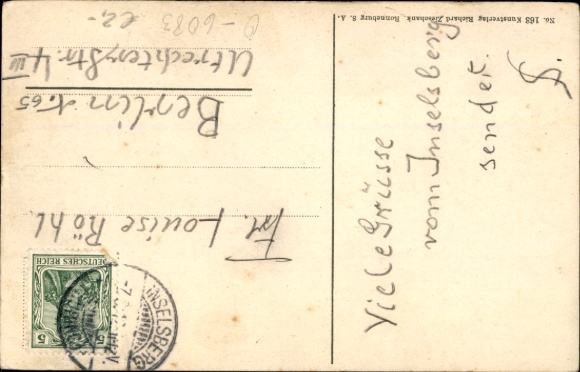 No. 163 Kunstverlag Richard Zieschank Ronneburg S. A.
Viele Grüsse
vom Inselsberg
sendet.
Frl. Louise Röhl.
Berlin N. 65
Utrechterstr. 4 III
DEUTSCHES REICH
5
5
INSELSBERG